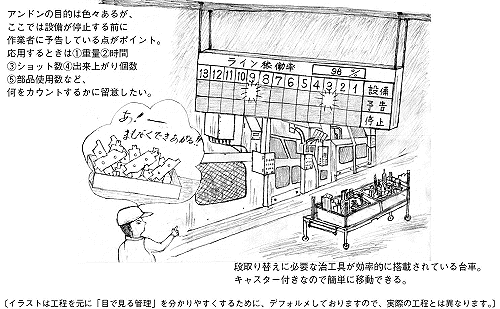 アンドンの目的は色々あるが、
ここでは設備が停止する前に
作業者に予告している点がポイント。
応用するときは①重量②時間
③ショット数④出来上がり個数
⑤部品使用数など、
何をカウントするかに留意したい。
ライン稼働率 96 %
13 12 11 10 9 8 7 6 5 4 3 2 1 設備
予告
停止
あ!ー
まもなくできあがる!!
段取り替えに必要な治工具が効率的に搭載されている台車。
キャスター付きなので簡単に移動できる。
〔イラストは工程を元に「目で見る管理」を分かりやすくするために、デフォルメしておりますので、実際の工程とは異なります。〕